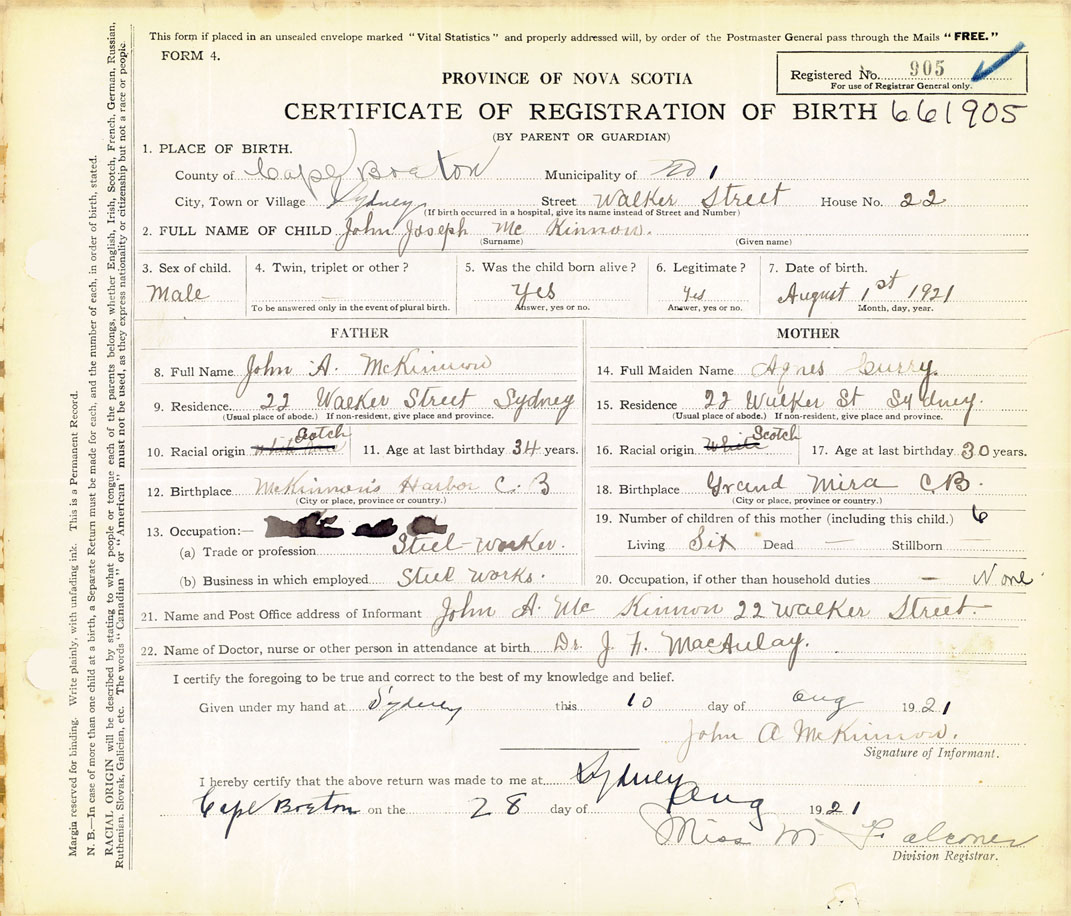 This form if placed in an unsealed envelope marked "Vital Statistics" and properly addressed will, by order of the Postmaster General pass through the Mails "FREE."
FORM 4.
Registered No. 905
For use of Registrar General only.
PROVINCE OF NOVA SCOTIA
CERTIFICATE OF REGISTRATION OF BIRTH 661905
(BY PARENT OR GUARDIAN)
1. PLACE OF BIRTH.
County of Cape Breton Municipality of No 1
City, Town or Village Sydney Street Walker Street House No. 22
(If birth occurred in a hospital, give its name instead of Street and Number)
2. FULL NAME OF CHILD John Joseph Mc Kinnon.
(Surname) (Given name)
3. Sex of child. 4. Twin, triplet or other? 5. Was the child born alive? 6. Legitimate? 7. Date of birth.
Male Yes Yes August 1st 1921
To be answered only in the event of plural birth. Answer, yes or no. Answer, yes or no. Month, day, year.
FATHER MOTHER
8. Full Name John A. McKinnon 14. Full Maiden Name Agnes Curry.
9. Residence 22 Walker Street Sydney 15. Residence 22 Walker St Sydney.
(Usual place of abode.) If non-resident, give place and province. (Usual place of abode.) If non-resident, give place and province.
10. Racial origin Scotch 11. Age at last birthday 34 years. 16. Racial origin White Scotch 17. Age at last birthday 30 years.
12. Birthplace McKinnon's Harbor C. B 18. Birthplace Grand Mira C.B.
(City or place, province or country.) (City or place, province or country.)
13. Occupation:— 19. Number of children of this mother (including this child.) 6
(a) Trade or profession Steel-Worker. Living Six Dead — Stillborn —
(b) Business in which employed Steel Works. 20. Occupation, if other than household duties — None
21. Name and Post Office address of Informant John A. Mc Kinnon 22 Walker Street.-
22. Name of Doctor, nurse or other person in attendance at birth Dr. J. F. MacAulay.
I certify the foregoing to be true and correct to the best of my knowledge and belief.
Given under my hand at Sydney this 10 day of Aug 1921
John A McKinnon.
Signature of Informant.
I hereby certify that the above return was made to me at Sydney
Cape Breton on the 28 day of Aug 1921
Miss M Falconer
Division Registrar.
Margin reserved for binding. Write plainly, with unfading ink. This is a Permanent Record.
N. B.—In case of more than one child at a birth, a Separate Return must be made for each, and the number of each, in order of birth, stated.
RACIAL ORIGIN will be described by stating to what people or tongue each of the parents belongs, whether English, Irish, Scotch, French, German, Russian,
Ruthenian, Slovak, Galician, etc. The words "Canadian" or "American" must not be used, as they express nationality or citizenship but not a race or people